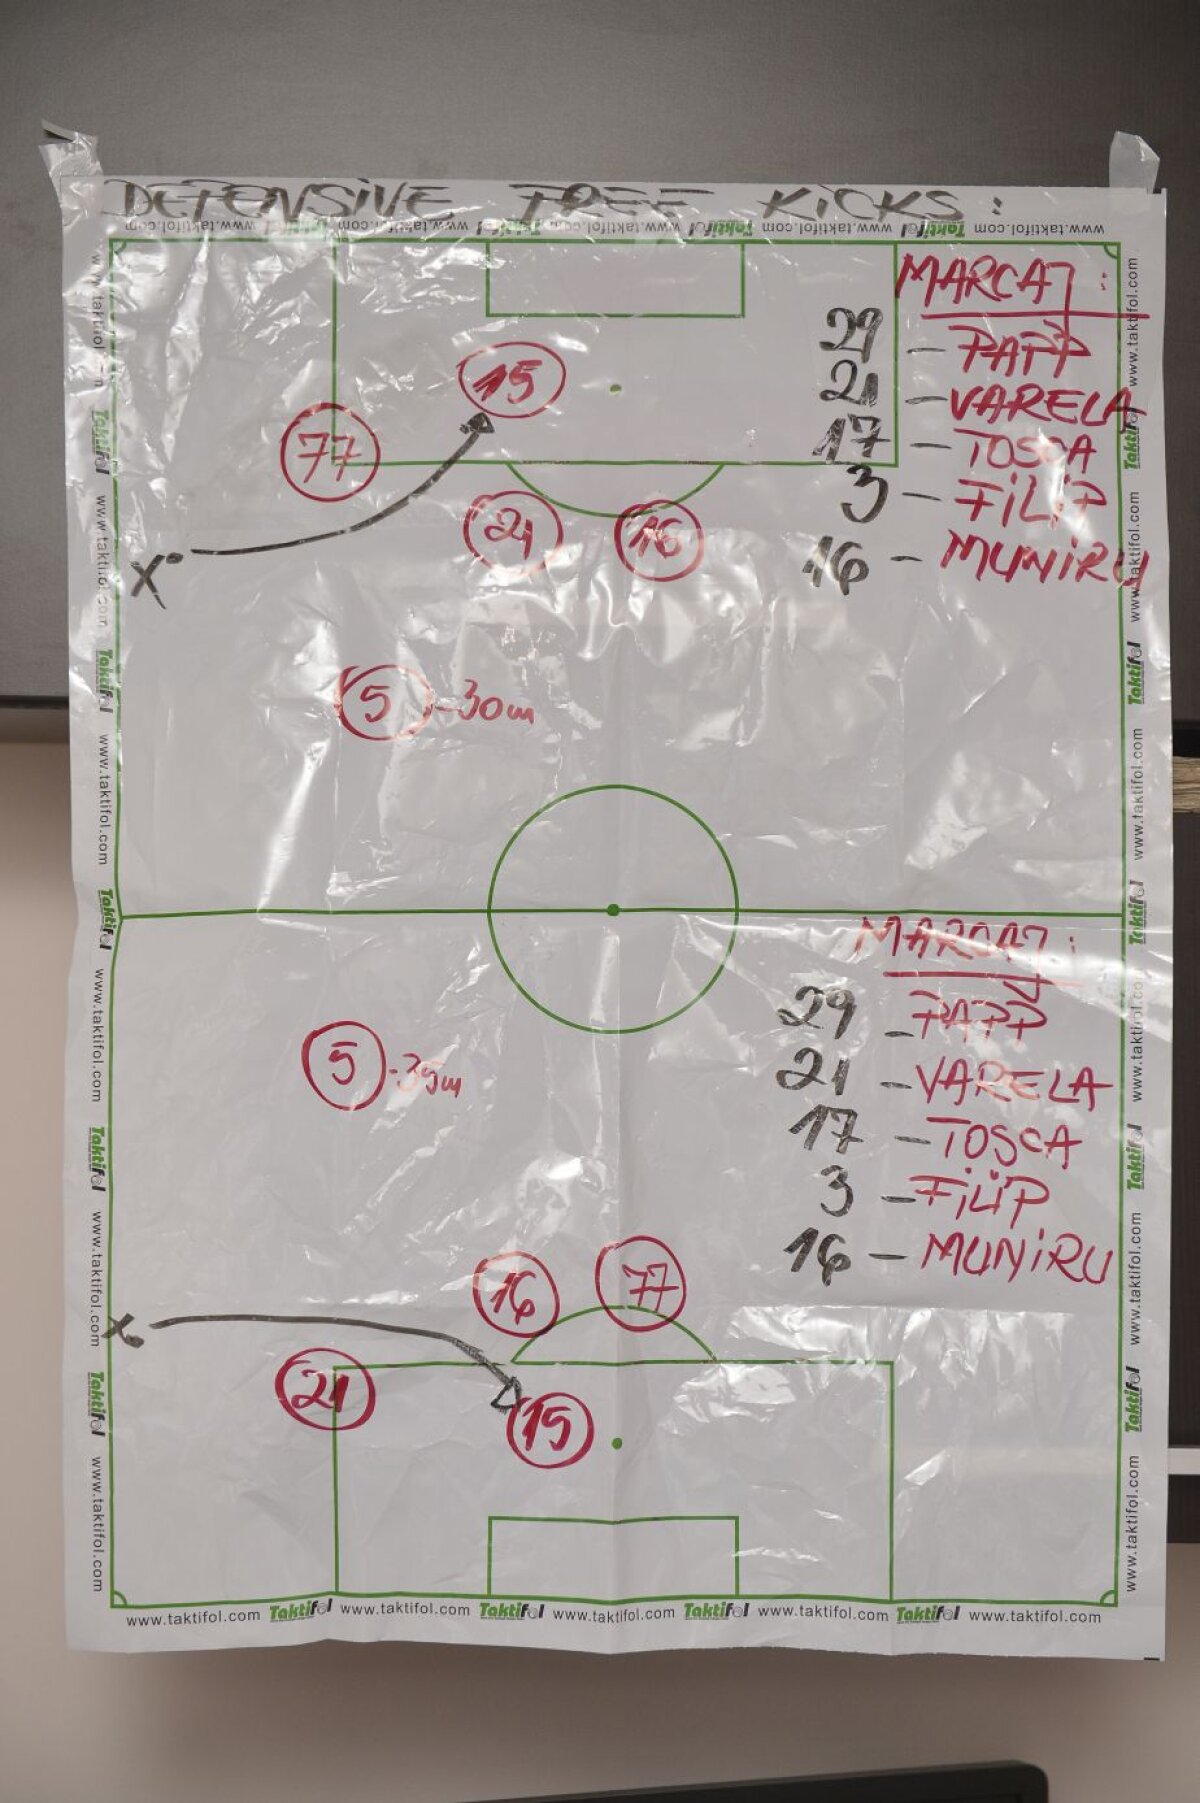 DEFENSIVE FREE KICKS:
www.taktifol.com Taktifol www.taktifol.com Taktifol www.taktifol.com Taktifol www.taktifol.com Taktifol www.taktifol.com
MARCAJ:
29 - PAPP
21 - VARELA
17 - TOSCA
3 - FILIP
16 - MUNIRU
15
77
21
16
X
5 - 30m
MARCAJ:
29 - PAPP
21 - VARELA
17 - TOSCA
3 - FILIP
16 - MUNIRU
5 - 35m
16
77
X
21
15
www.taktifol.com Taktifol www.taktifol.com Taktifol www.taktifol.com Taktifol www.taktifol.com Taktifol www.taktifol.com
www.taktifol.com Taktifol www.taktifol.com Taktifol www.taktifol.com Taktifol www.taktifol.com Taktifol www.taktifol.com Taktifol www.taktifol.com
www.taktifol.com Taktifol www.taktifol.com Taktifol www.taktifol.com Taktifol www.taktifol.com Taktifol www.taktifol.com Taktifol www.taktifol.com